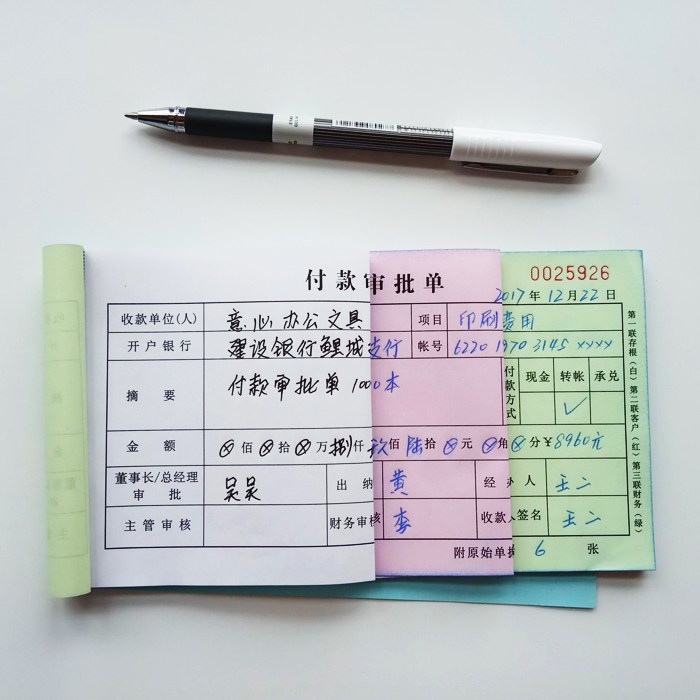 付款审批单
0025926
2017年12月22日
收款单位(人) 意心办公文具 项目 印刷费用
开户银行 建设银行鲤城支行 帐号 6220 1970 3145 xxxx
摘要 付款审批单1000本 付款方式 现金 转帐 承兑
✓
金额 ⊗佰⊗拾⊗万捌仟玖佰陆拾⊗元⊗角⊗分¥8960元
董事长/总经理审批 吴吴 出纳 黄 经办人 王二
主管审核 财务审核 李 收款人签名 王二
附原始单据 6 张
第一联存根(白)第二联客户(红)第三联财务(绿)